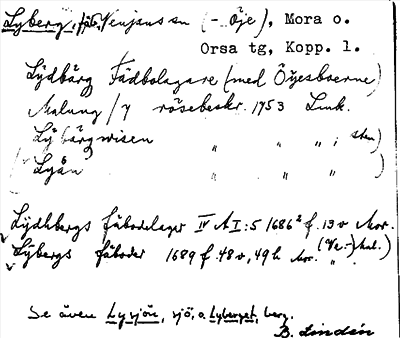 Lyberg, fäb., Venjans sn (- Öje), Mora o.
Orsa tg, Kopp. l.
Lÿdbärg Fädbolagare (med Öÿesboerne)
Malung /7 rösebeskr. 1753 Link.
Lÿ bärgwisen " " " ; sten)
(Lyån " " ")
Lÿdhbergs fäbodelager IV A I:5 1686² f. 13 v Mor.
Lÿbergs fäboder 1689 f. 48 v, 49 h Mor. (Ve.-) kal.)
Se även Lysjön, sjö, o. Lyberget, berg.
B. Lindén